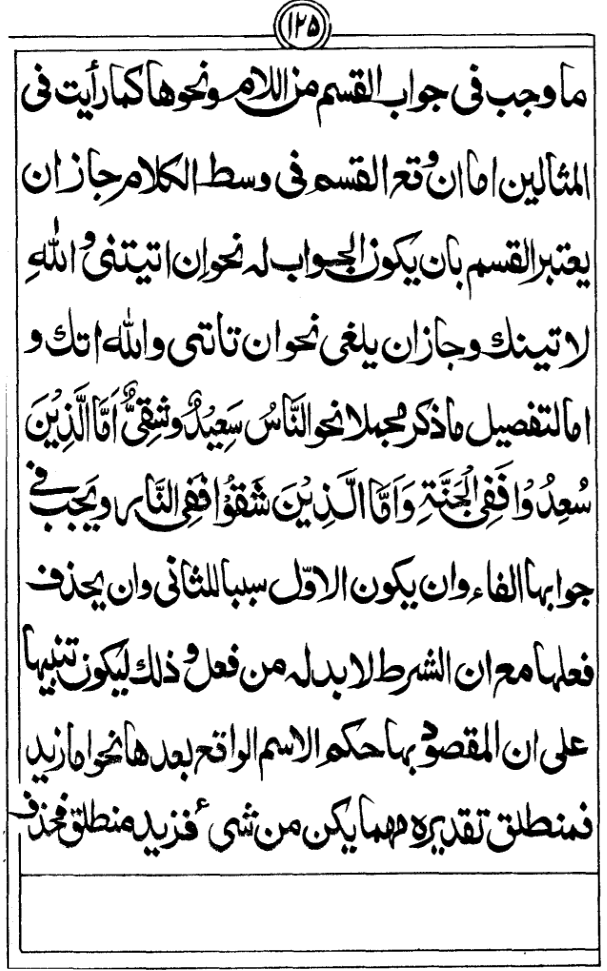 ١٢٥
ما وجب فى جواب القسم من اللام ونحوها كما رأيت فى
المثالين اما ان وقع القسم فى وسط الكلام جاز ان
يعتبر القسم بان يكون الجواب له نحو ان اتيتنى و اللهِ
لاتينك وجاز ان يلغى نحو ان تاتنى والله اتك و
اما لتفصيل ما ذكر مجملا نحو النَّاسُ سَعِيْدٌ وَّشَقِىٌّ اَمَّا الَّذِيْنَ
سُعِدُوْا فَفِى الْجَنَّةِ وَاَمَّا الَّذِيْنَ شَقُوْا فَفِى النَّارِ ويَجب فى
جوابها الفاء وان يكون الاوّل سببا للثانى وان يحذف
فعلها مع ان الشرط لا بد له من فعل و ذلك ليكون تنبيها
على ان المقصود بها حكم الاسم الواقع بعدها نحو اما زيد
فمنطلق تقديره مهما يكن من شىء فزيد منطلق فحذف